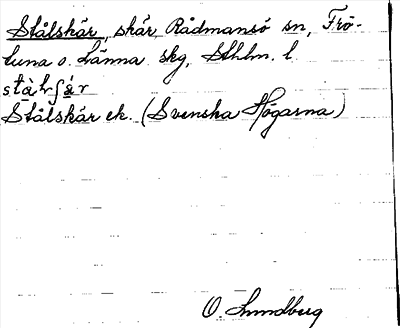 Stålskär, skär Rådmansö sn, Frö-
tuna o. Länna skg, Sthlm. l
Stålskär ek. (Svenska Högarna)
O. Lundberg